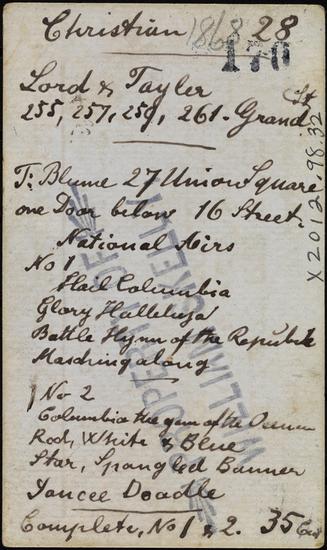 Christian 1868 28
170
Lord & Tayler
255, 257, 259, 261 - Grand St
T. Blume 27 Union Square
one Door below 16 Street.
National Airs
No 1
Hail Columbia
Glory Halleluja
Battle Hymn of the Republik
Marching along
No 2
Columbia the gem of the Ocean
Red, White & Blue
Star, Spangled Banner
Yancee Doodle
Complete, No 1 & 2. 35 Cent
X2012.98.32
PROPERTY OF
WILLIAM